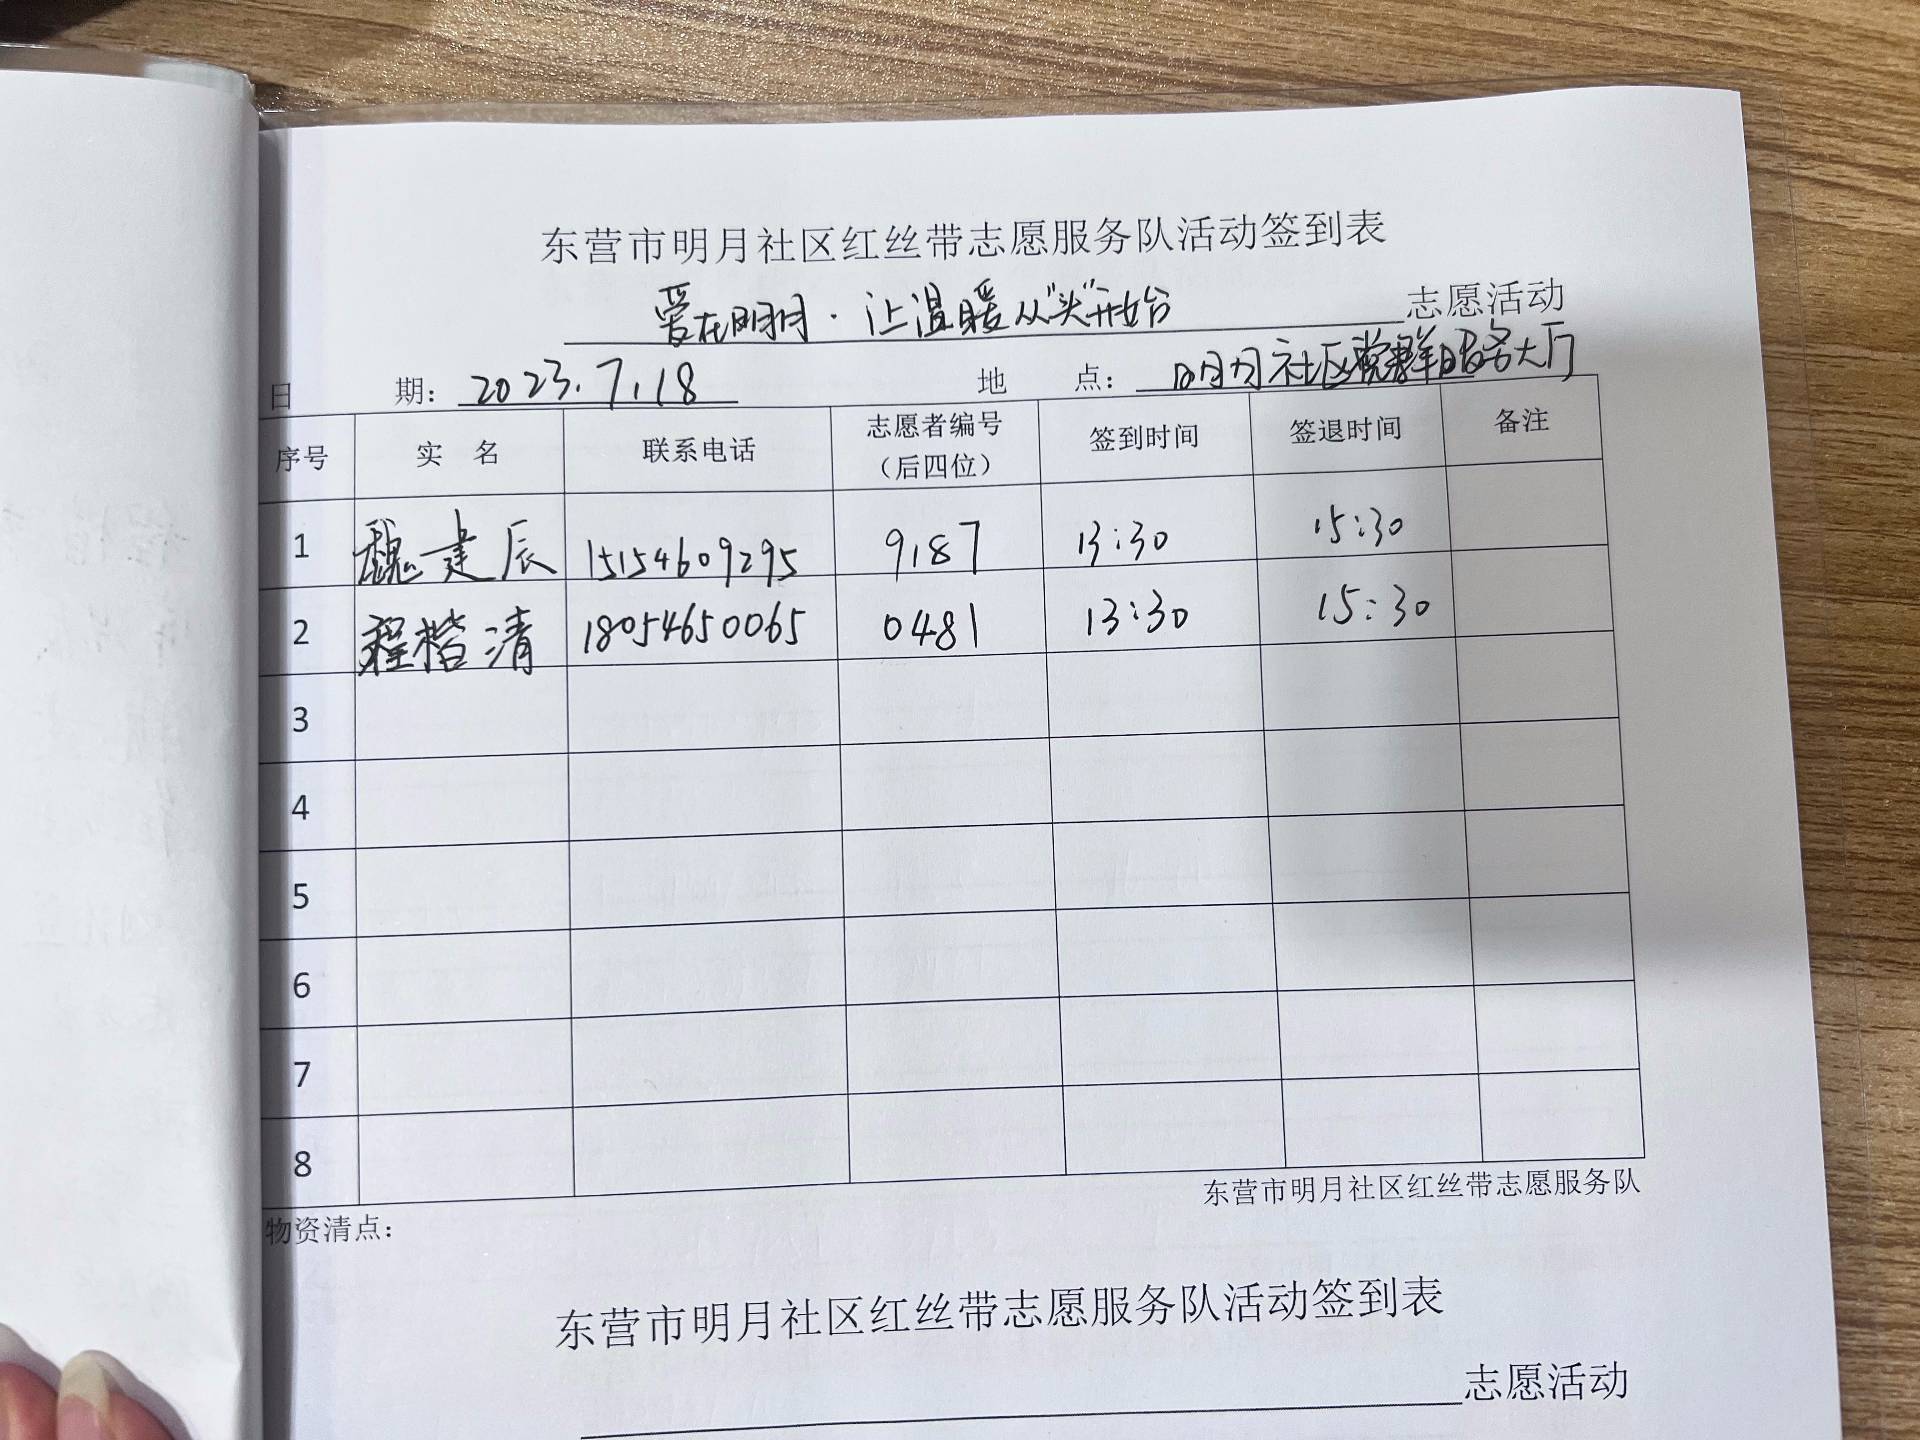 东营市明月社区红丝带志愿服务队活动签到表
爱在明月·让温暖从"头"开始 志愿活动
日 期：2023.7.18 地 点：明月社区党群服务大厅
序号 实 名 联系电话 志愿者编号（后四位） 签到时间 签退时间 备注
1 魏建辰 15154609295 9187 13:30 15:30
2 程楷清 18054650065 0481 13:30 15:30
3
4
5
6
7
8
东营市明月社区红丝带志愿服务队
物资清点：
东营市明月社区红丝带志愿服务队活动签到表
志愿活动